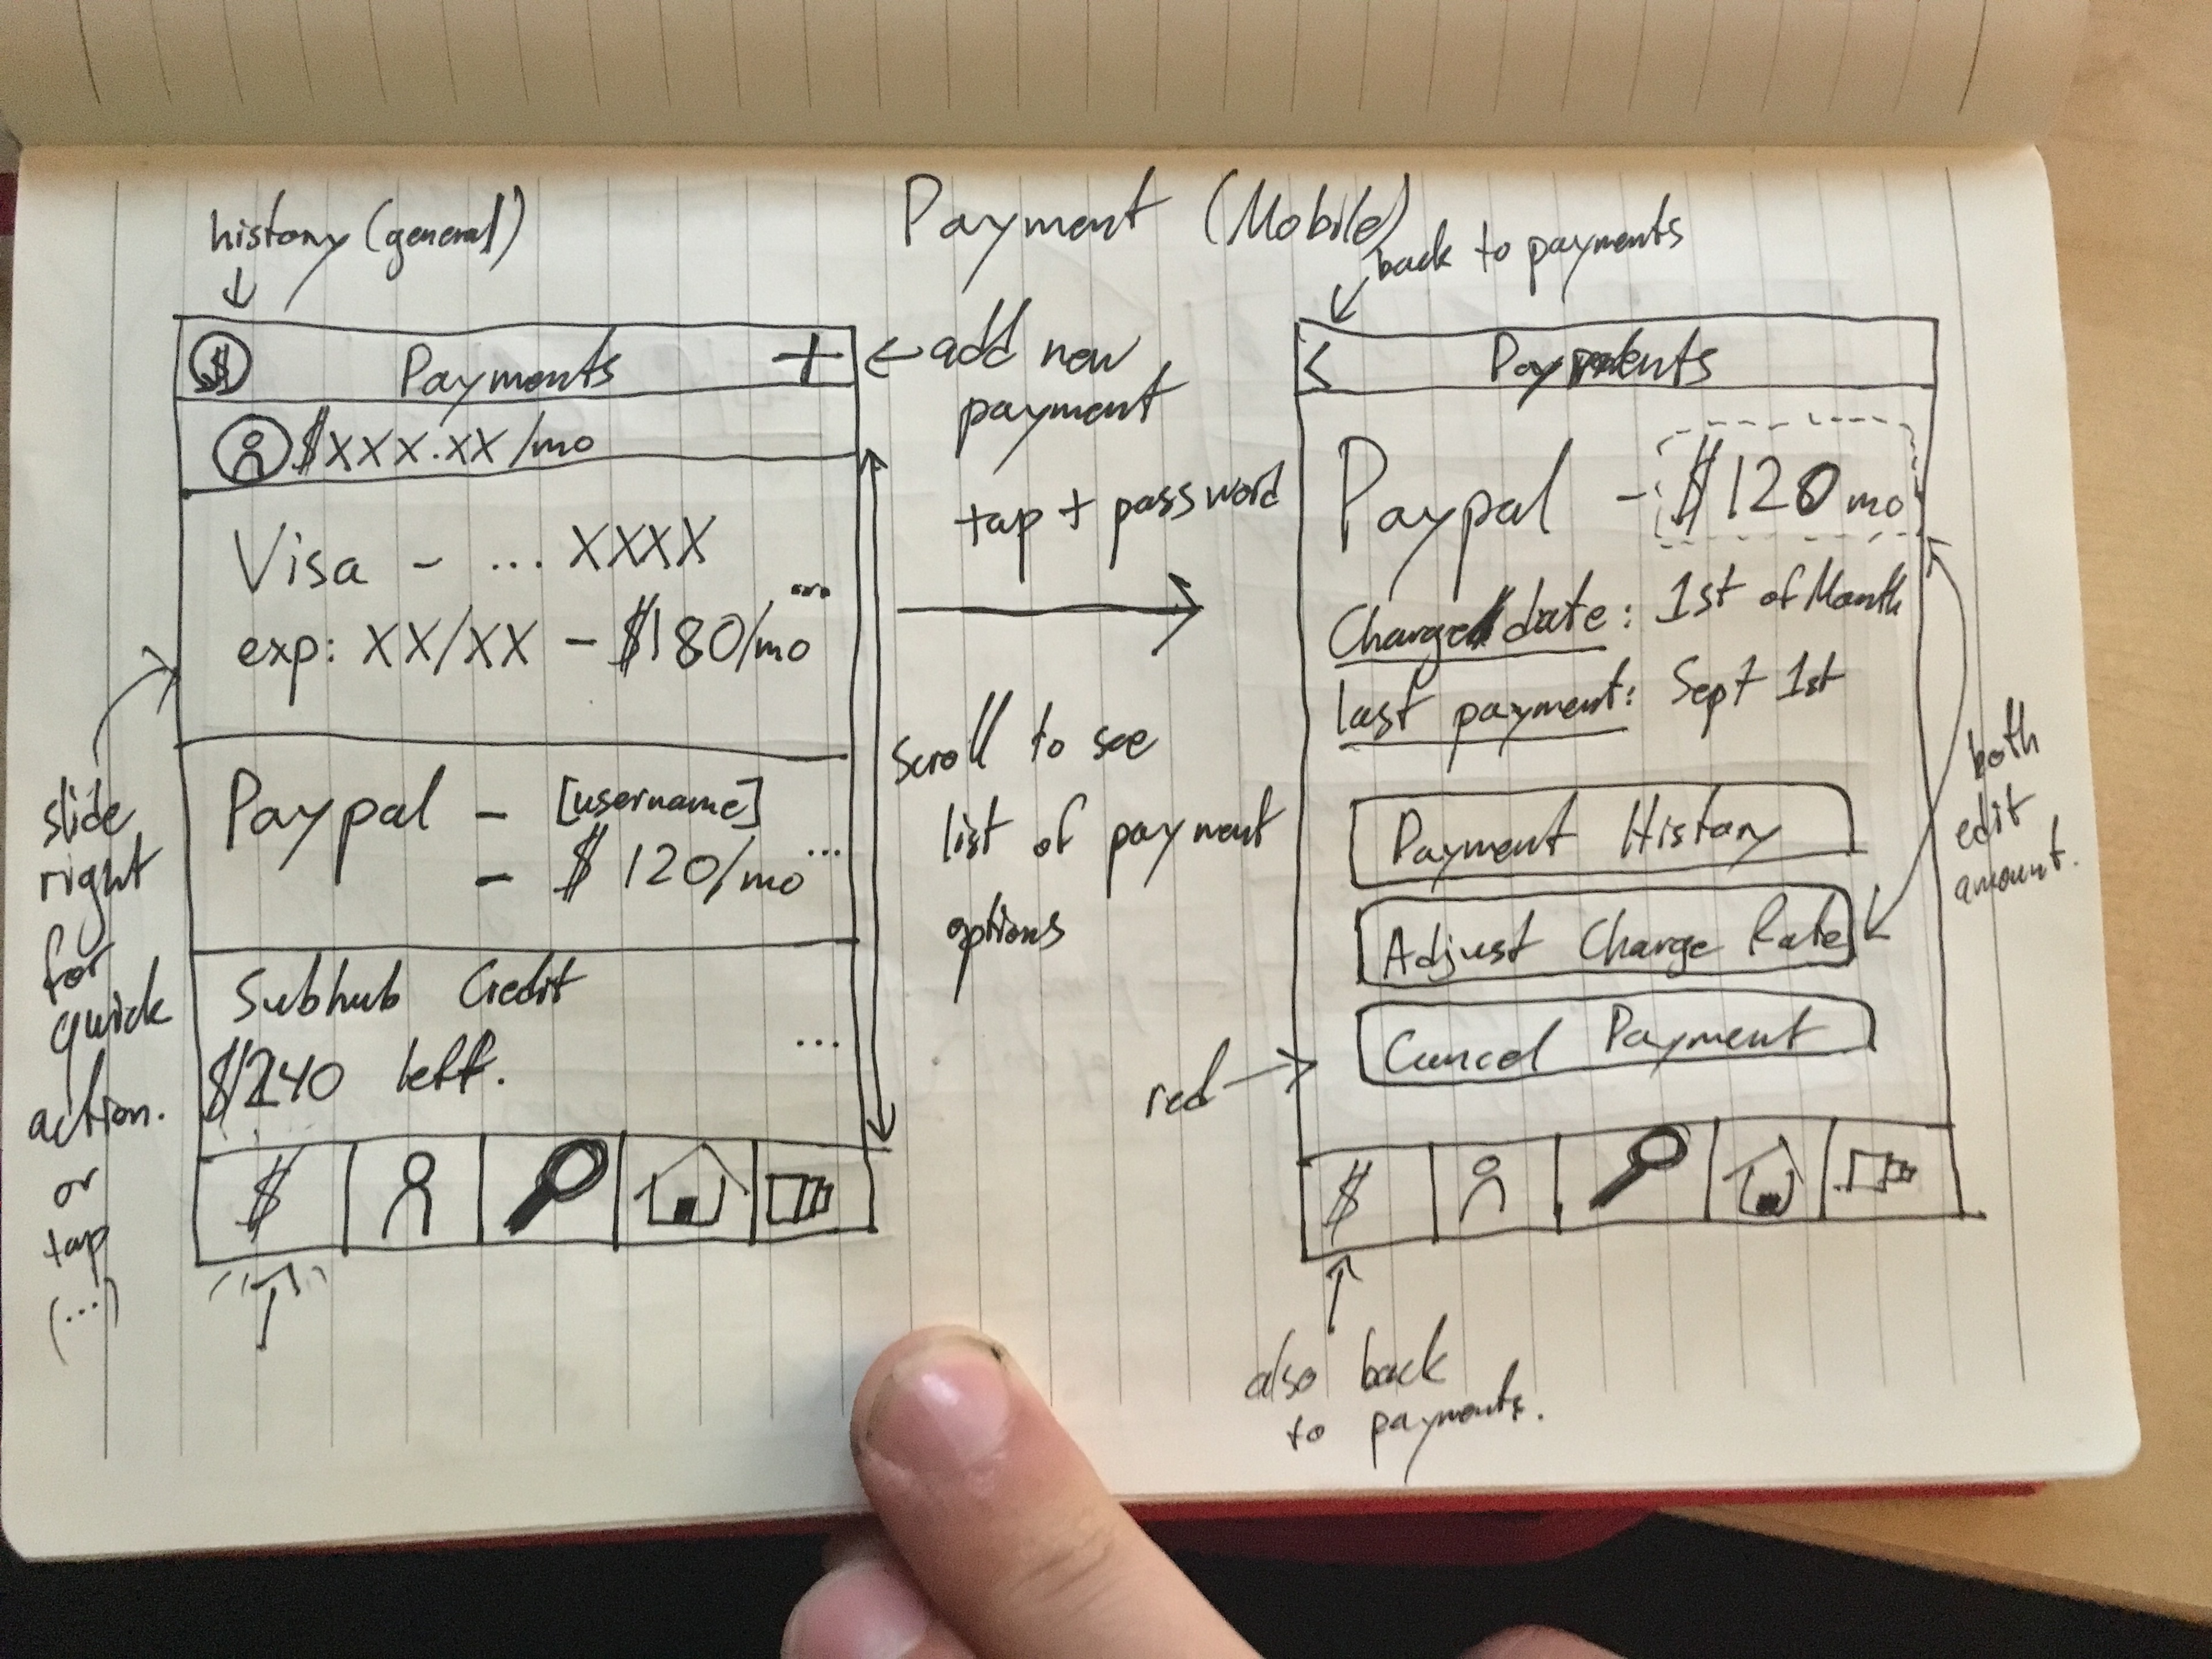 Payment (Mobile)
history (general)
$ Payments +
$XXX.XX/mo
Visa - ... XXXX
...
exp: XX/XX - $180/mo
Paypal - [username]
- $120/mo ...
Subhub Credit
$240 left. ...
$
slide
right
for
quick
action.
or
tap
(...)
add new
payment
tap + password
scroll to see
list of payment
options
back to payments
< Payments
Paypal - $120 mo
Charge date: 1st of Month
last payment: Sept 1st
Payment History
Adjust Charge Rate
Cancel Payment
$
both
edit
amount.
red
also back
to payments.